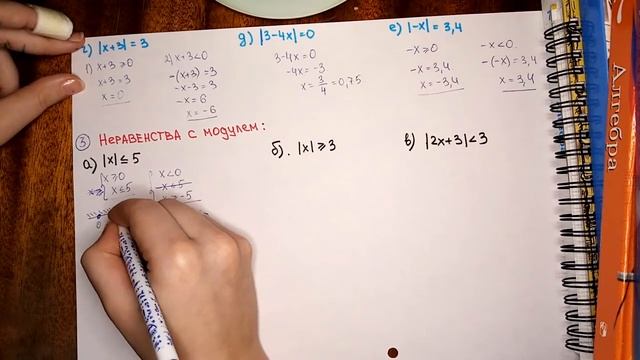 г) |x+3| = 3
1) x+3 ≥ 0
x+3 = 3
x = 0
2) x+3 < 0
-(x+3) = 3
-x-3 = 3
-x = 6
x = -6
д) |3-4x| = 0
3-4x = 0
-4x = -3
x = 3/4 = 0,75
е) |-x| = 3,4
-x ≥ 0
-x = 3,4
x = -3,4
-x < 0
-(-x) = 3,4
x = 3,4
③ Неравенства с модулем:
а) |x| ≤ 5
x ≥ 0
x ≤ 5
x < 0
-x ≤ 5
x ≥ -5
0
б). |x| ≥ 3
в) |2x+3| < 3
Алгебра